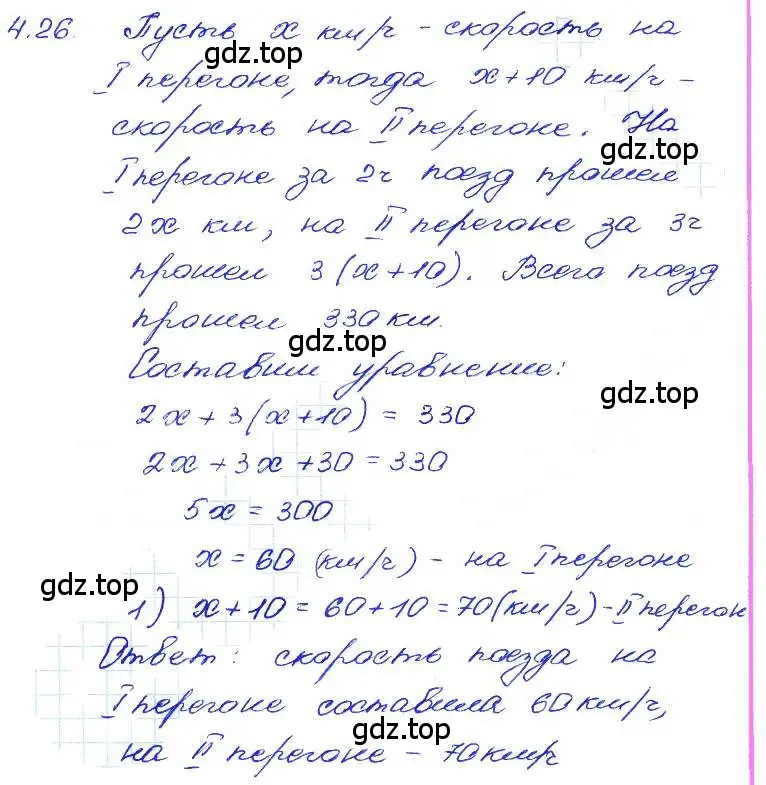 4.26. Пусть x км/ч - скорость на
gdz.top
I перегоне, тогда x+10 км/ч -
скорость на II перегоне. На
gdz.top
I перегоне за 2ч поезд прошел
2x км, на II перегоне за 3ч
прошел 3(x+10). Всего поезд
прошел 330 км.
gdz.top
Составим уравнение:
gdz.top
2x+3(x+10) = 330
2x+3x+30=330
5x=300
x=60 (км/ч) - на I перегоне
gdz.top
1) x+10=60+10=70(км/ч)-II перегон
Ответ: скорость поезда на
I перегоне составила 60 км/ч,
gdz.top
на II перегоне - 70 км/ч